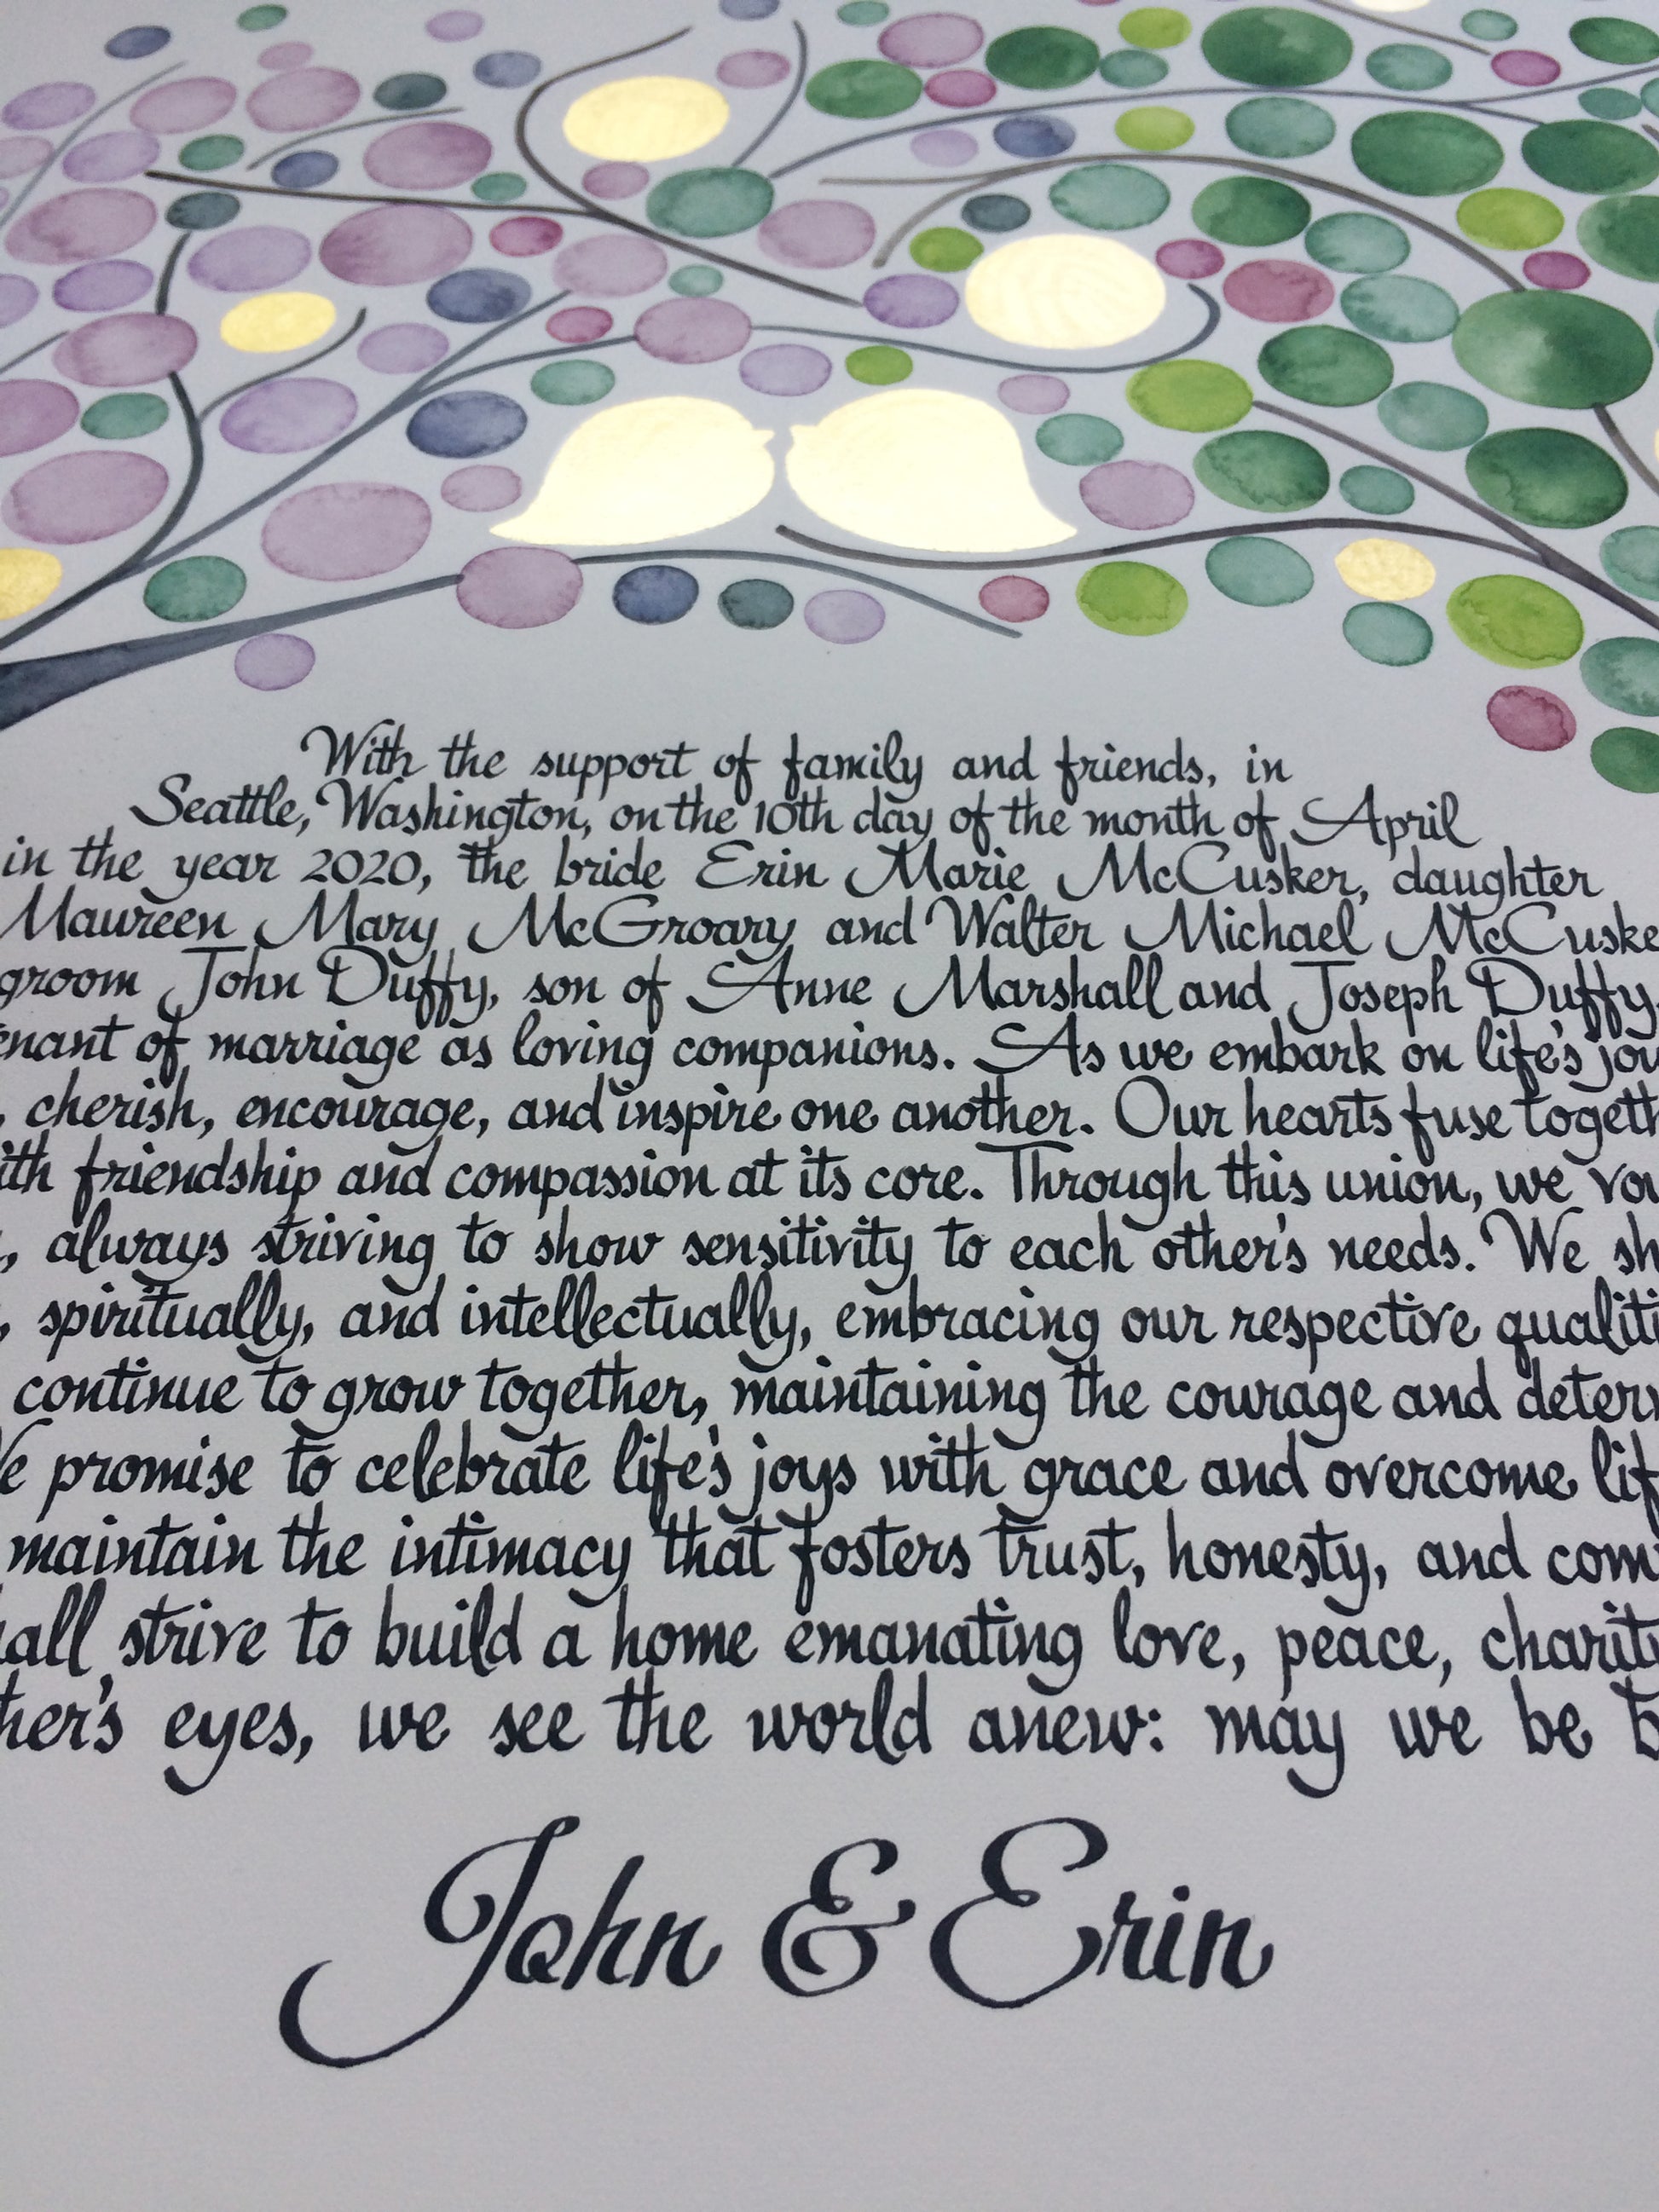 With the support of family and friends, in
Seattle, Washington, on the 10th day of the month of April
in the year 2020, the bride Erin Marie McCusker, daughter
Maureen Mary McGroary and Walter Michael McCuske
groom John Duffy, son of Anne Marshall and Joseph Duffy
enant of marriage as loving companions. As we embark on life's jou
, cherish, encourage, and inspire one another. Our hearts fuse togeth
ith friendship and compassion at its core. Through this union, we vow
, always striving to show sensitivity to each other's needs. We sh
, spiritually, and intellectually, embracing our respective qualiti
continue to grow together, maintaining the courage and deter
We promise to celebrate life's joys with grace and overcome lif
maintain the intimacy that fosters trust, honesty, and com
all strive to build a home emanating love, peace, charit
her's eyes, we see the world anew: may we be b
John & Erin